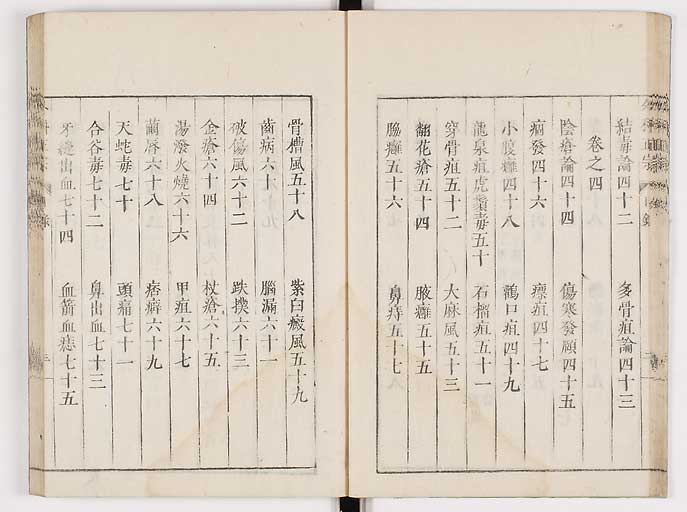 結毒論四十二 多骨疽論四十三
卷之四
陰瘡論四十四 傷寒發頤四十五
痼發四十六 瘭疽四十七
小腹癰四十八 鸛口疽四十九
龍泉疽虎鬚毒五十 石榴疽五十一
穿骨疽五十二 大麻風五十三
翻花瘡五十四 腋癰五十五
脇癰五十六 鼻痔五十七
骨槽風五十八 紫白癜風五十九
齒病六十 腦漏六十一
破傷風六十二 跌撲六十三
金瘡六十四 杖瘡六十五
湯潑火燒六十六 甲疽六十七
繭唇六十八 痞癖六十九
天蛇毒七十 頭痛七十一
合谷毒七十二 鼻出血七十三
牙縫出血七十四 血箭血痣七十五